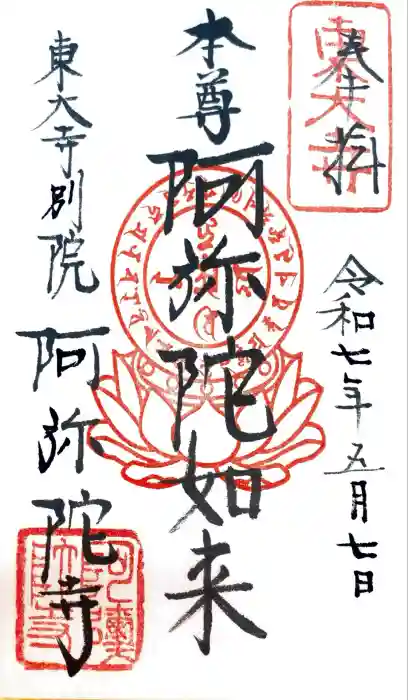 奉拝
令和七年五月七日
本尊
阿弥陀如来
東大寺別院
阿弥陀寺